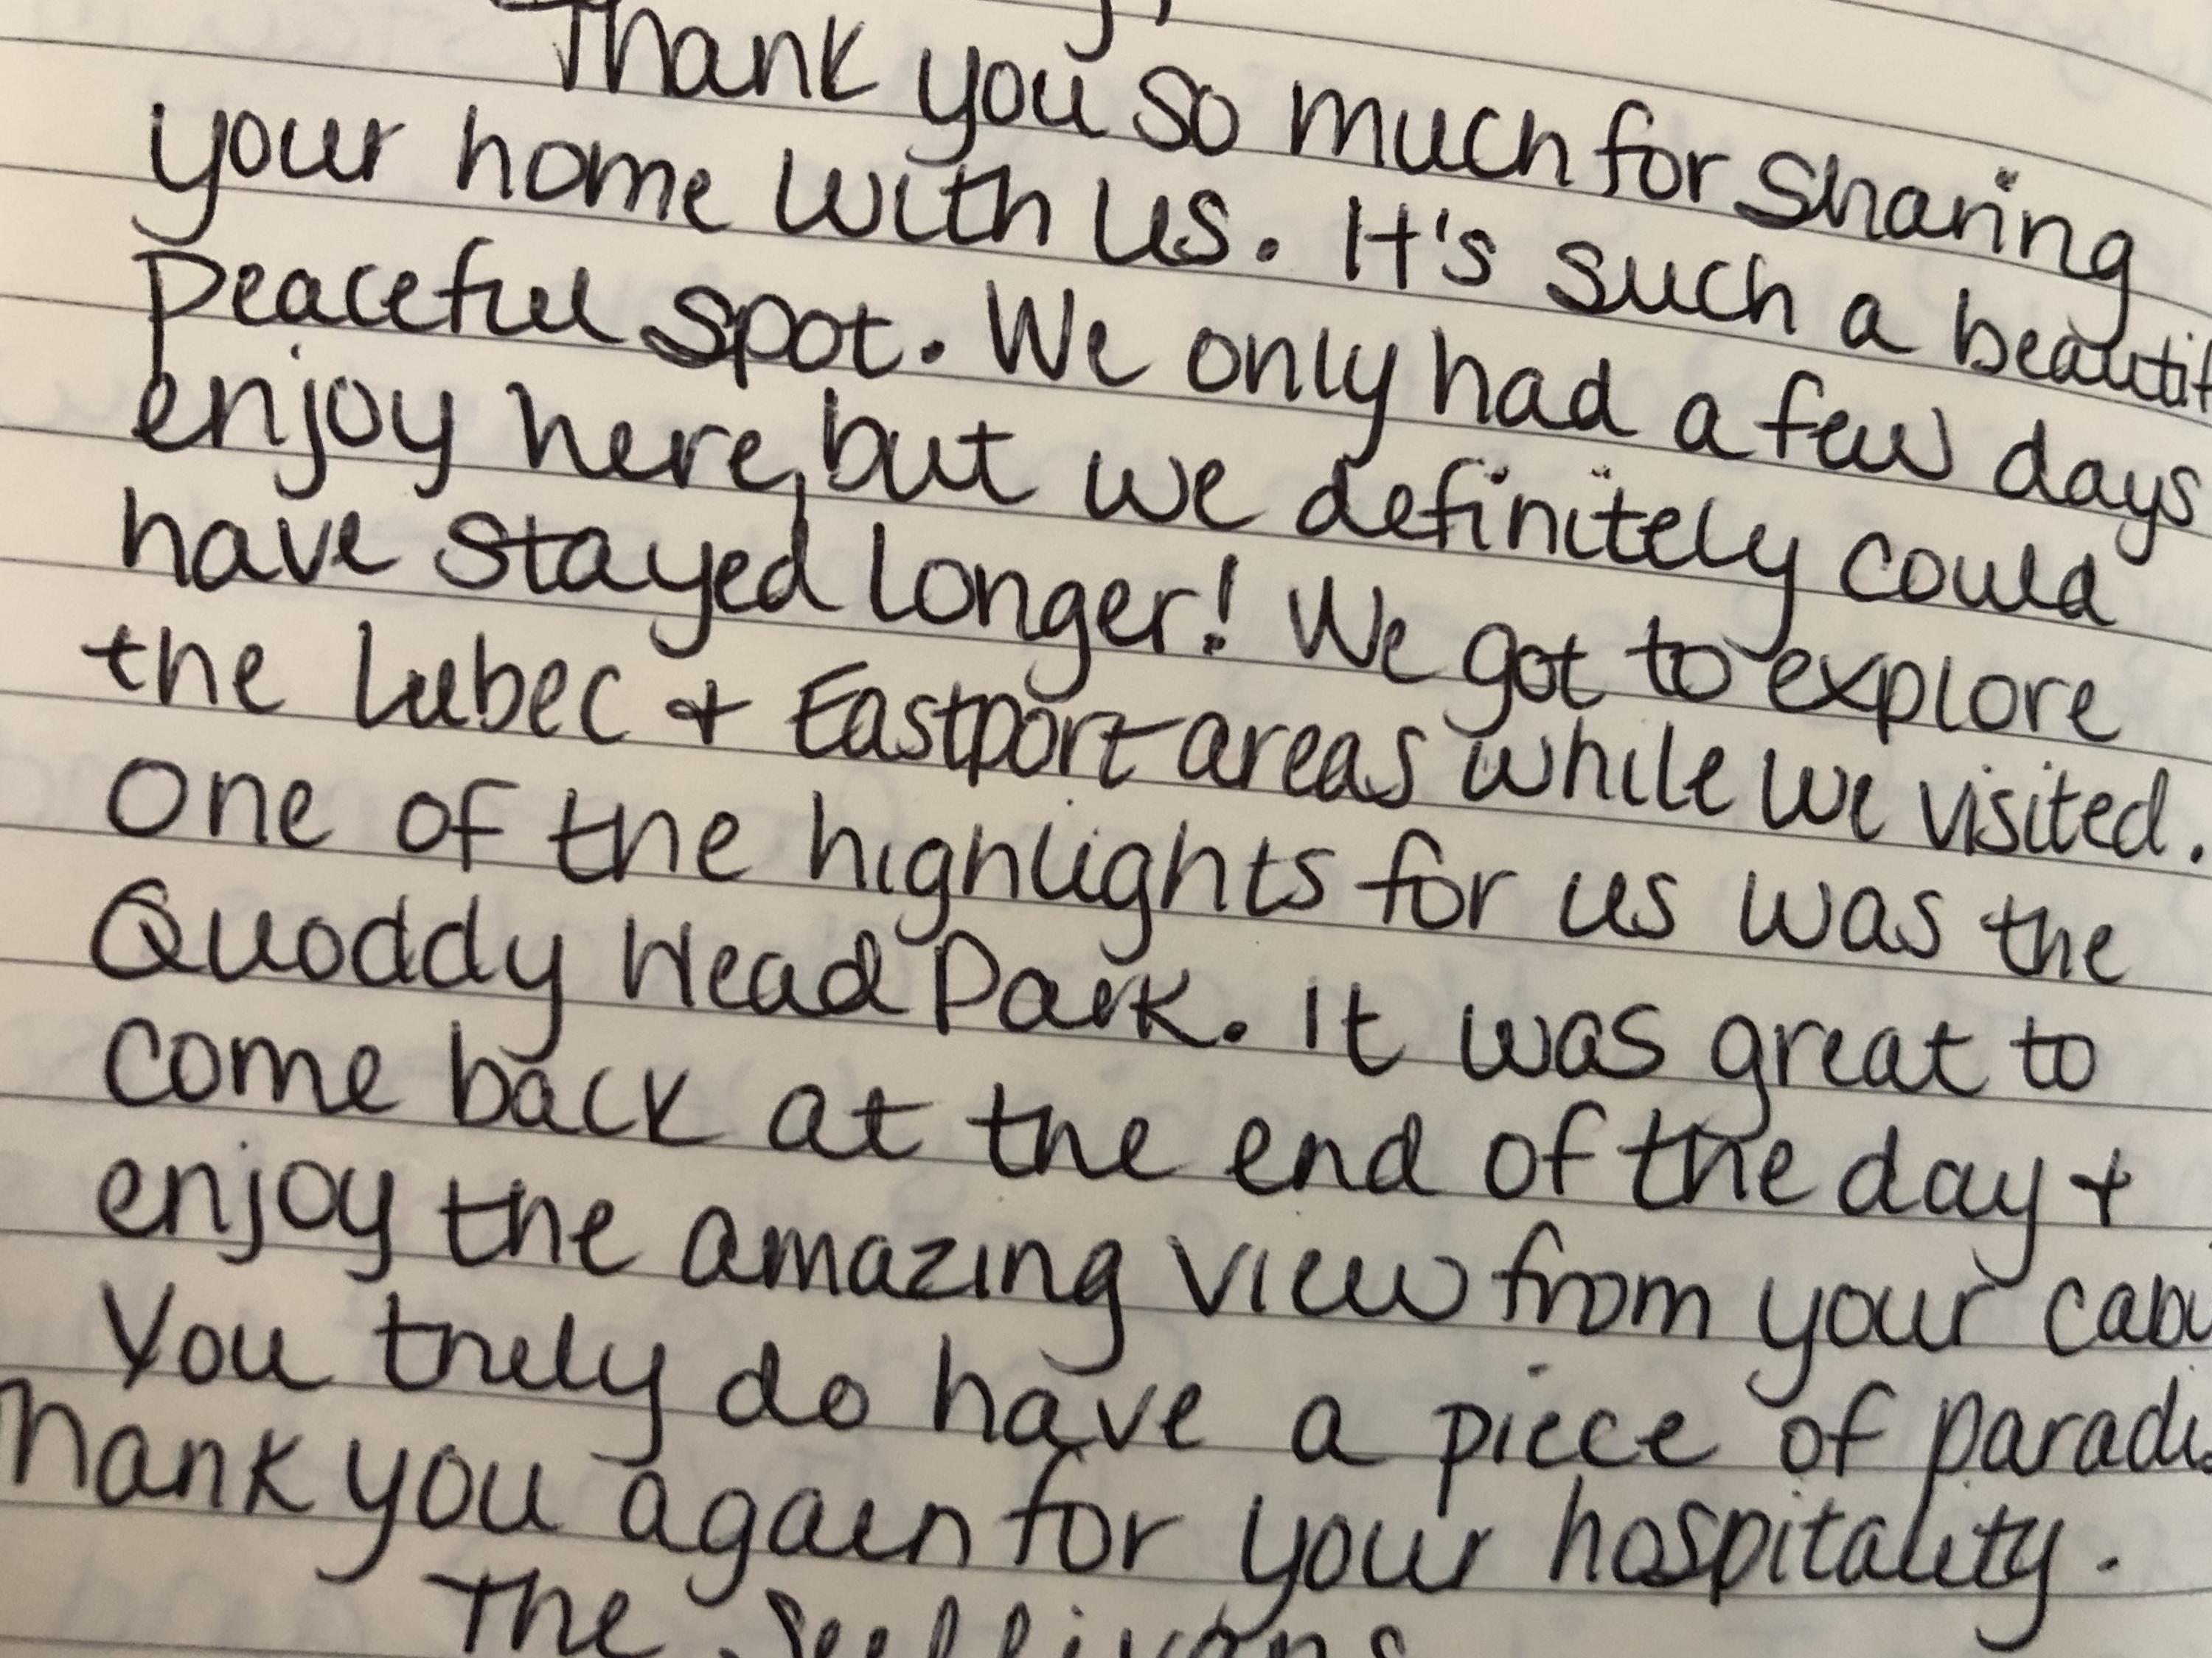 Thank you so much for sharing
your home with us. It's such a beautif
peaceful spot. We only had a few days
enjoy here, but we definitely could
have stayed longer! We got to explore
the Lubec + Eastport areas while we visited.
One of the highlights for us was the
Quoddy Head Park. It was great to
come back at the end of the day +
enjoy the amazing view from your cabi
You truly do have a piece of paradis
Thank you again for your hospitality.
The Sullivans